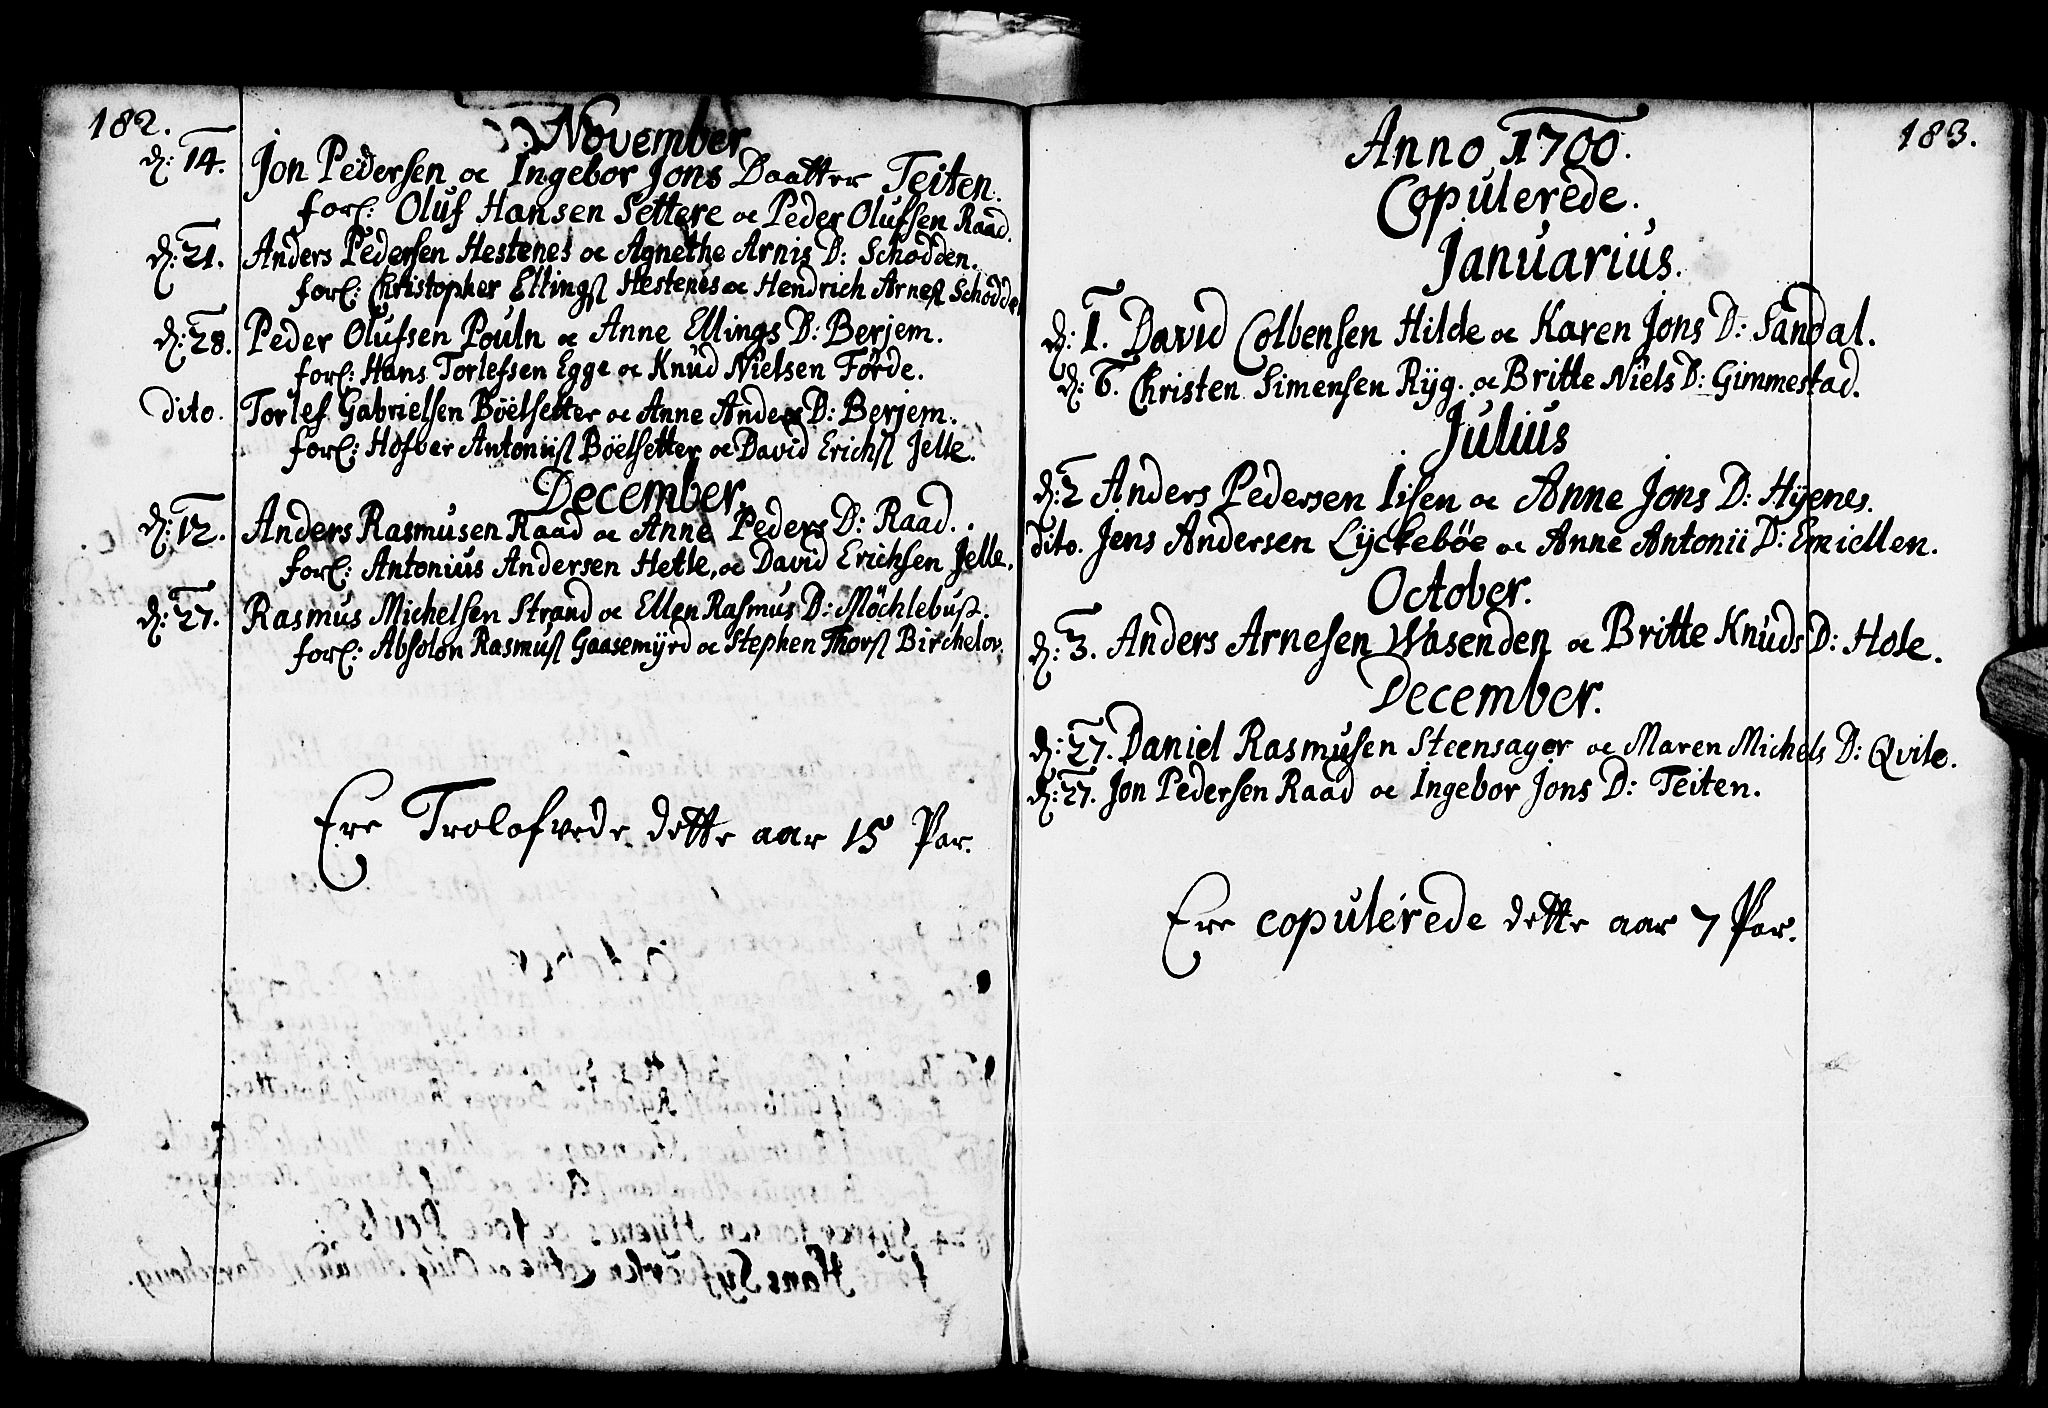 182.
November
d: 14. Jon Pedersen oc Ingebor Jons Daatter Teiten.
forl: Oluf Hansen Settere oc Peder Olufsen Raad.
d: 21. Anders Pedersen Hestenes oc Agnethe Arnis D: Schodden.
forl: Christopher Ellingsß Hestenes oc Hendrich Arnesß Schodde
d: 28. Peder Olufsen Pouln oc Anne Ellings D: Berjem.
forl: Hans Torlefsen Egge oc Knud Nielsen Førde.
dito. Torlef Gabrielsen Böelsetter oc Anne Anders D: Berjem.
forl: Hofver Antoniisß Böelsetter oc David Erichsß Jelle.
December.
d: 12. Anders Rasmusen Raad oc Anne Peders D: Raad.
forl: Antonius Andersen Hetle, oc David Erichsen Jelle.
d: 27. Rasmus Michelsen Strand oc Ellen Rasmus D: Möchlebust.
forl: Absolon Rasmusß Gaasemÿrd oc Stephen Thorsß Birchelov.
Ere Trolofvede dette aar 15 Par.
183.
Anno 1700.
Copulerede.
Januarius.
d: 1. David Colbensen Hilde oc Karen Jons D: Sandal.
d: 6. Christen Simensen Rÿg. oc Britte Niels D: Gimmestad.
Julius
d: 2 Anders Pedersen Iisen oc Anne Jons D: Hÿenes.
dito. Jens Andersen Lÿckebøe oc Anne Antonii D: Emiellen.
October.
d: 3. Anders Arnesen Wasenden oc Britte Knuds D: Hole.
December.
d: 27. Daniel Rasmusen Steensager oc Maren Michels D: Qvile.
d: 27. Jon Pedersen Raad oc Ingebor Jons D: Teiten.
Ere copulerede dette aar 7 Par.